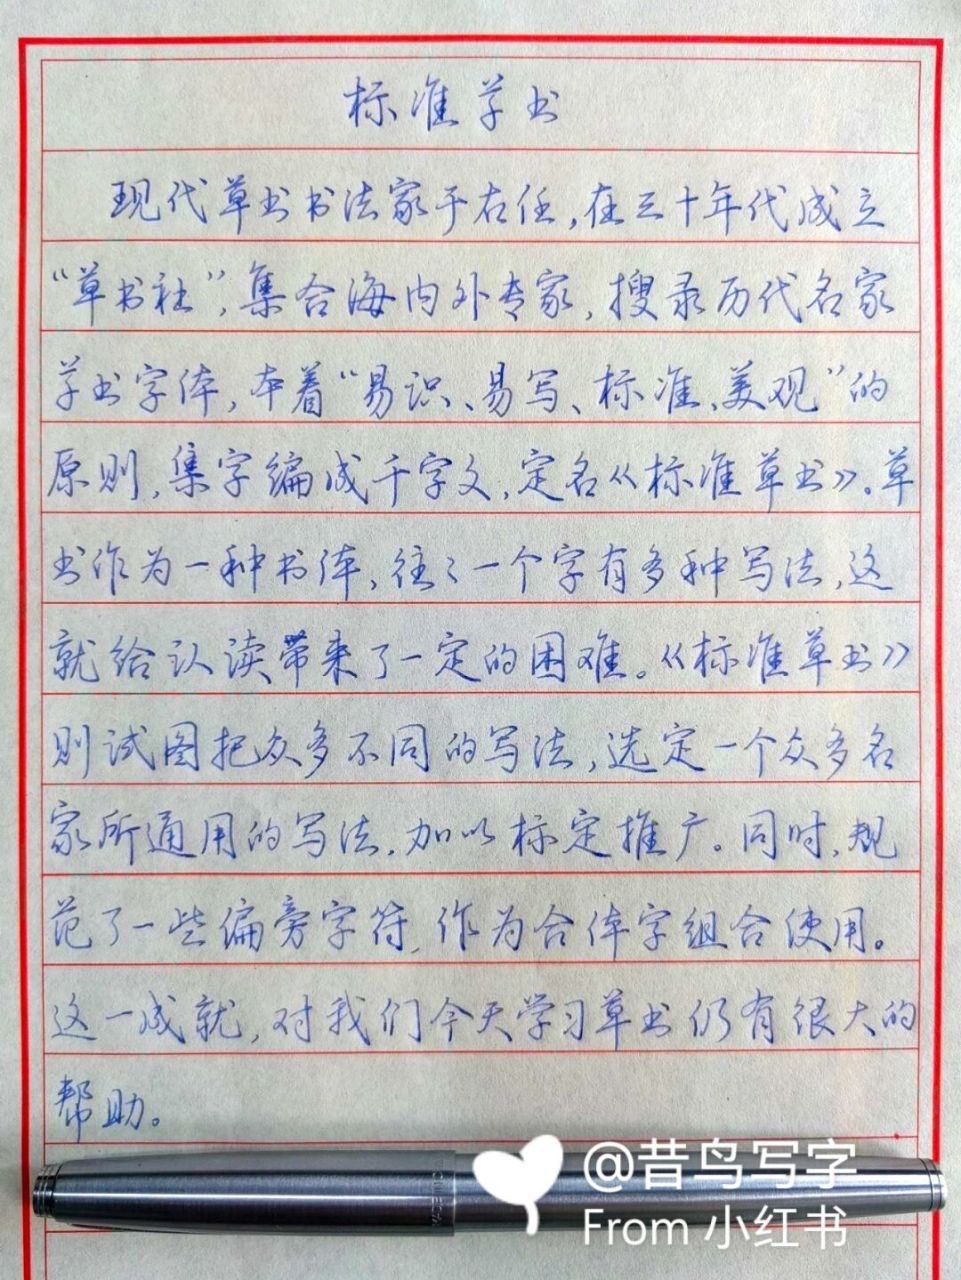 标准草书
现代草书书法家于右任,在三十年代成立
“草书社”,集合海内外专家,搜录历代名家
草书字体,本着“易识、易写、标准、美观”的
原则,集字编成千字文,定名《标准草书》。草
书作为一种书体,往々一个字有多种写法,这
就给认读带来了一定的困难。《标准草书》
则试图把众多不同的写法,选定一个众多名
家所通用的写法,加以标定推广。同时,规
范了一些偏旁字符,作为合体字组合使用。
这一成就,对我们今天学习草书仍有很大的
帮助。
@昔鸟写字
From 小红书